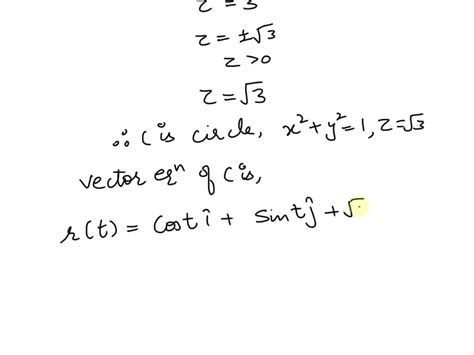 z = 3
z = ±√3
z > 0
z = √3
∴ C is circle, x²+y²=1, z=√3
vector eqⁿ of C is,
r(t) = cost î + sint ĵ + √